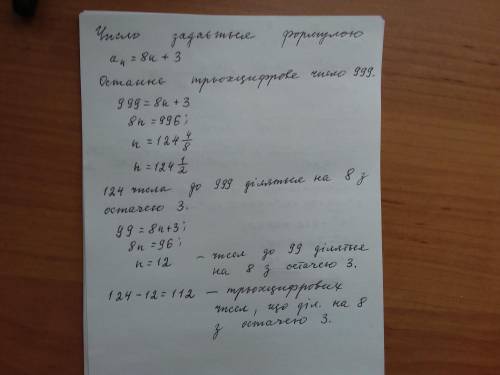 Число задається формулою
aₙ = 8n + 3
Останнє трьохцифрове число 999.
999 = 8n + 3
8n = 996;
n = 124 4/8
n = 124 1/2
124 числа до 999 діляться на 8 з
остачею 3.
99 = 8n+3;
8n = 96;
n = 12 – чисел до 99 діляться
на 8 з остачею 3.
124 – 12 = 112 – трьохцифрових
чисел, що діл. на 8
з остачею 3.